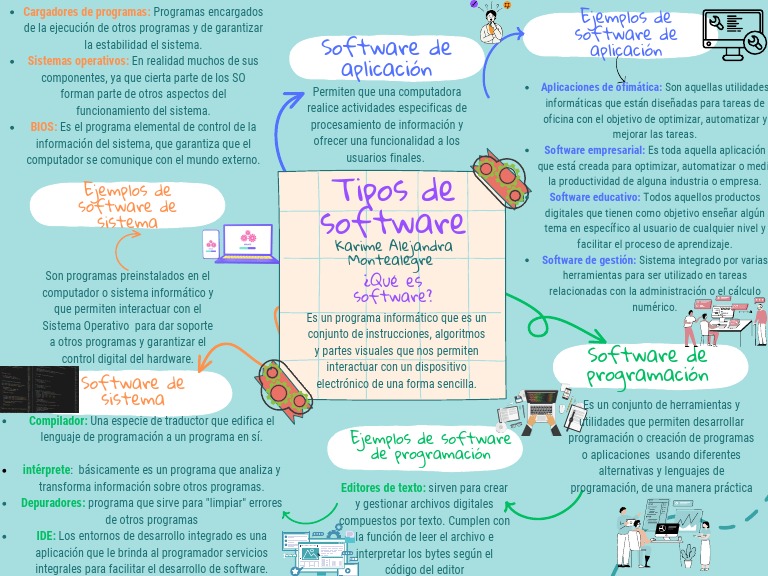 Cargadores de programas: Programas encargados
de la ejecución de otros programas y de garantizar
la estabilidad el sistema.
Sistemas operativos: En realidad muchos de sus
componentes, ya que cierta parte de los SO
forman parte de otros aspectos del
funcionamiento del sistema.
BIOS: Es el programa elemental de control de la
información del sistema, que garantiza que el
computador se comunique con el mundo externo.
Ejemplos de
software de
sistema
Son programas preinstalados en el
computador o sistema informático y
que permiten interactuar con el
Sistema Operativo para dar soporte
a otros programas y garantizar el
control digital del hardware.
Software de
sistema
Software de
aplicación
Permiten que una computadora
realice actividades especificas de
procesamiento de información y
ofrecer una funcionalidad a los
usuarios finales.
Ejemplos de
software de
aplicación
Aplicaciones de ofimática: Son aquellas utilidades
informáticas que están diseñadas para tareas de
oficina con el objetivo de optimizar, automatizar y
mejorar las tareas.
Software empresarial: Es toda aquella aplicación
que está creada para optimizar, automatizar o medi
la productividad de alguna industria o empresa.
Software educativo: Todos aquellos productos
digitales que tienen como objetivo enseñar algún
tema en específico al usuario de cualquier nivel y
facilitar el proceso de aprendizaje.
Software de gestión: Sistema integrado por varias
herramientas para ser utilizado en tareas
relacionadas con la administración o el cálculo
numérico.
Tipos de
software
Karime Alejandra
Montealegre
¿Qué es
software?
Es un programa informático que es un
conjunto de instrucciones, algoritmos
y partes visuales que nos permiten
interactuar con un dispositivo
electrónico de una forma sencilla.
Software de
programación
Es un conjunto de herramientas y
utilidades que permiten desarrollar
programación o creación de programas
o aplicaciones usando diferentes
alternativas y lenguajes de
programación, de una manera práctica
Ejemplos de software
de programación
Editores de texto: sirven para crear
y gestionar archivos digitales
compuestos por texto. Cumplen con
la función de leer el archivo e
interpretar los bytes según el
código del editor
Compilador: Una especie de traductor que edifica el
lenguaje de programación a un programa en sí.
intérprete: básicamente es un programa que analiza y
transforma información sobre otros programas.
Depuradores: programa que sirve para "limpiar" errores
de otros programas
IDE: Los entornos de desarrollo integrado es una
aplicación que le brinda al programador servicios
integrales para facilitar el desarrollo de software.